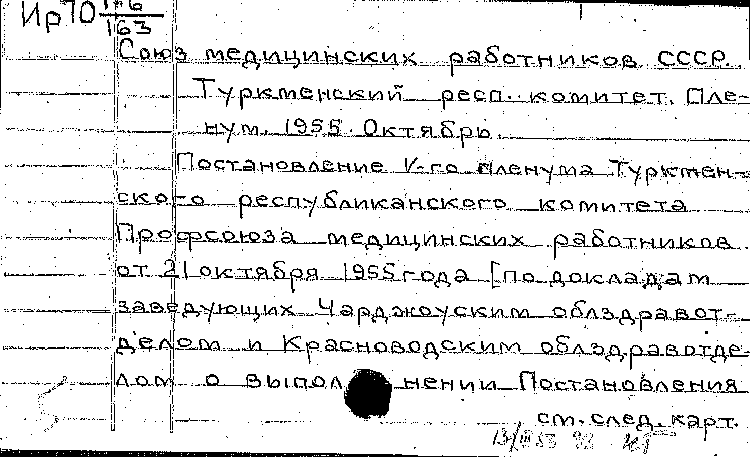 Ир70 176/163
Союз медицинских работников СССР.
Туркменский респ. комитет. Пле-
нум. 1955. Октябрь.
Постановление V-го пленума Туркмен-
ского республиканского комитета
Профсоюза медицинских работников
от 21 октября 1955 года [по докладам
заведующих Чарджоуским облздравот-
делом и Красноводским облздравотде-
лом о выполнении Постановления
см. след. карт.